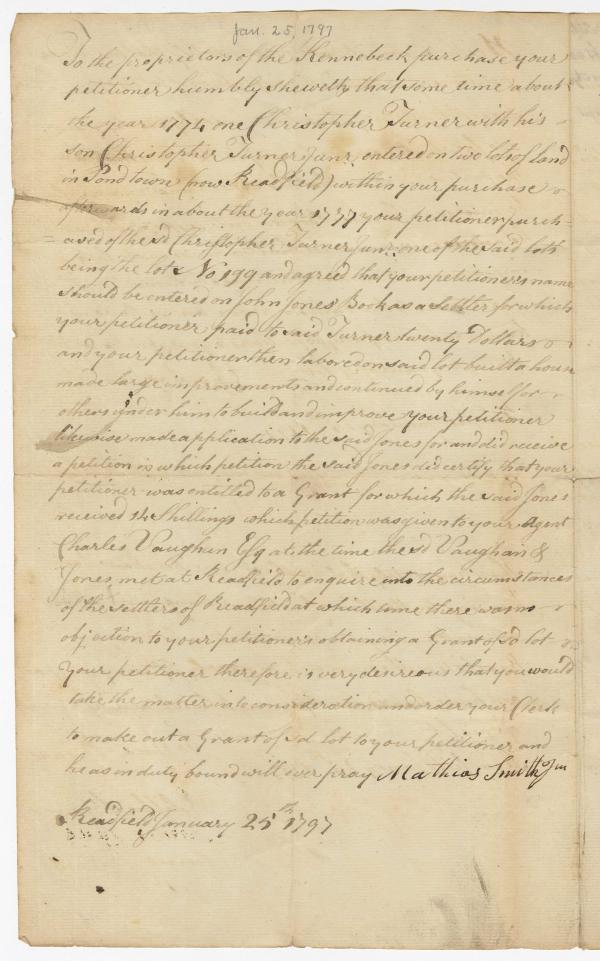 Jan. 25, 1797
To the proprietors of the Kennebeck purchase your
petitioner humbly sheweth that some time about
the year 1774 one Christopher Turner with his
son Christopher Turner Junr. entered on two lots of land
in Pond town (now Readfield) within your purchase &
afterwards in about the year 1777 your petitioner purch=
=ased of the sd Christopher Turner Junr. one of the said lots
being the lot No 199 and agreed that your petitioners name
should be entered on John Jones' Book as a settler for which
your petitioner paid to said Turner twenty Dollars
and your petitioner then labored on said lot built a house
made large improvements and continued by himself or
others under him to build and improve your petitioner
likewise made application to the said Jones for and did receive
a petition in which petition the said Jones did certify that your
petitioner was entitled to a Grant for which the said Jones
received 14 Shillings which petition was given to your Agent
Charles Vaughan Esq at the time the sd Vaughan &
Jones, met at Readfield to enquire into the circumstances
of the settlers of Readfield at which time there was no
objection to your petitioners obtaining a Grant of sd lot
your petitioner therefore is very desireous that you would
take the matter into consideration and order your Clerk
to make out a Grant of sd lot to your petitioner and
he as in duty bound will ever pray Mathias Smith Jun
Readfield January 25th 1797